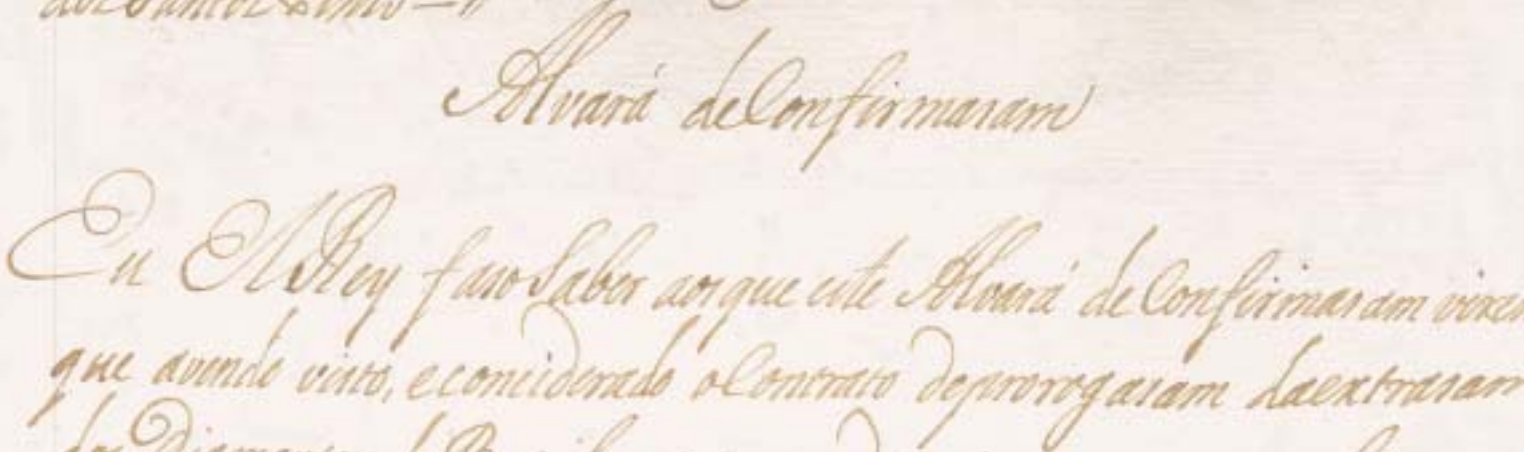 dos Santos
Alvará de Confirmasam
Eu El Rey faso saber aos que este Alvará de Confirmasam virem
que avendo visto, e conciderado o Contrato de prorogasam da extrasam
dos Diamantes